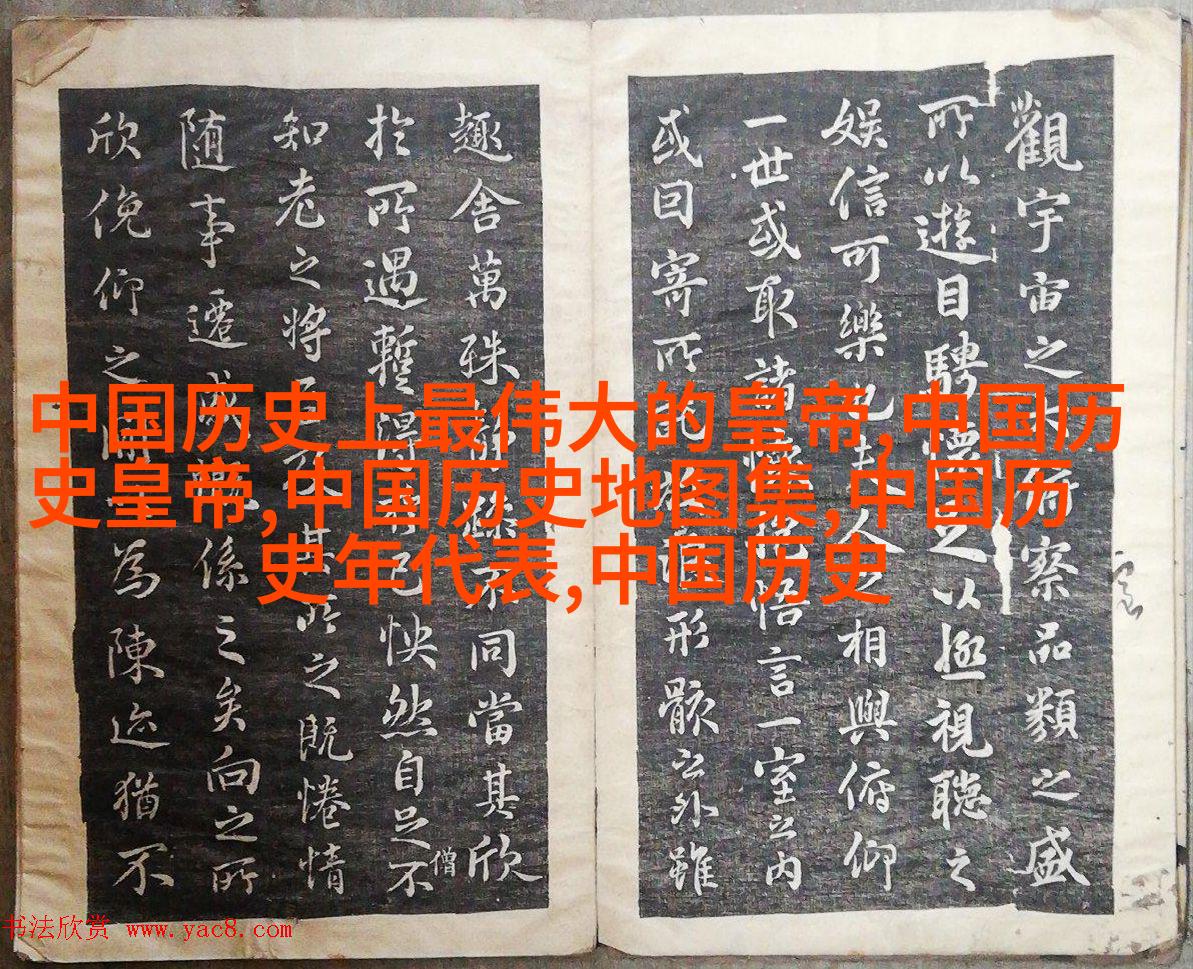 觀宇宙之大俯察品類之盛
所以遊目騁懷足以極視聽之
娛信可樂也夫人之相與俯仰
一世或取諸懷抱悟言一室之內
或因寄所託放浪形骸之外雖
趣舍萬殊靜躁不同當其欣
於所遇暫得於己怏然自足不
僧
知老之將至及其所之既惓情
随事遷感慨係之矣向之所
欣俛仰之間以為陳迹猶不
中国历史上最伟大的皇帝,中国历
史皇帝,中国历史地图集,中国历
史年代表,中国历史
书法欣赏 www.yac8.com